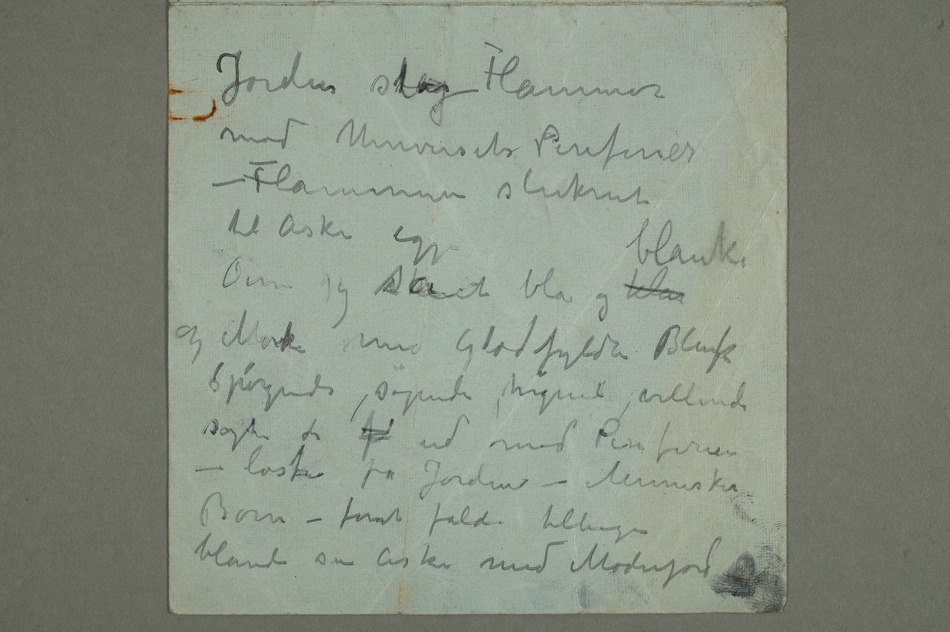 Jordens slag Flammer
mod Universets Periferier
— Flammerne slukned
til Aske igjen
blanke
Øine og blå og klar
og Mørke med Glødfyldte Blikk
Spørgende, søgende, villende
søgte de ud mod Periferien
— lostes fra Jorden — Menneske
Børn — forat falde tilbage
blande sin Aske med Moderjord